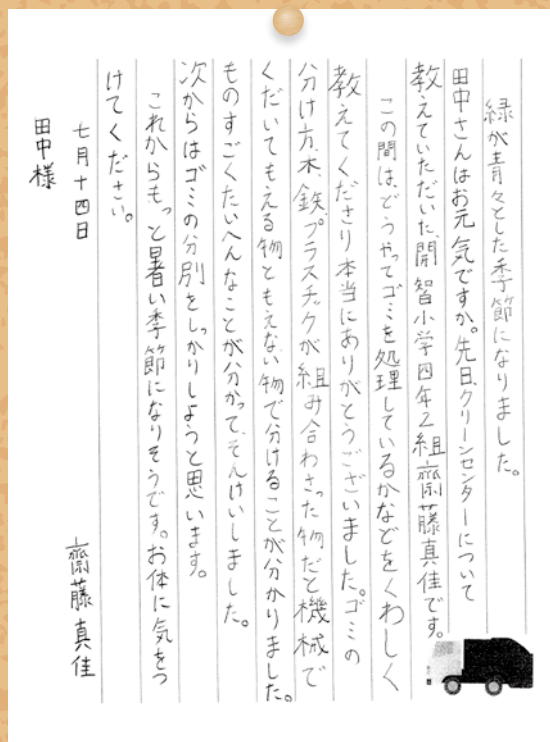 緑が青々とした季節になりました。
田中さんはお元気ですか。先日、クリーンセンターについて
教えていただいた、開智小学四年2組齋藤真佳です。
この間は、どうやってゴミを処理しているかなどをくわしく
教えてくださり本当にありがとうございました。ゴミの
分け方、木、鉄、プラスチックが組み合わさった物だと機械で
くだいてもえる物ともえない物で分けることが分かりました。
ものすごくたいへんなことが分かって、そんけいしました。
次からはゴミの分別をしっかりしようと思います。
これからもっと暑い季節になりそうです。お体に気をつ
けてください。
七月十四日
齋藤真佳
田中様